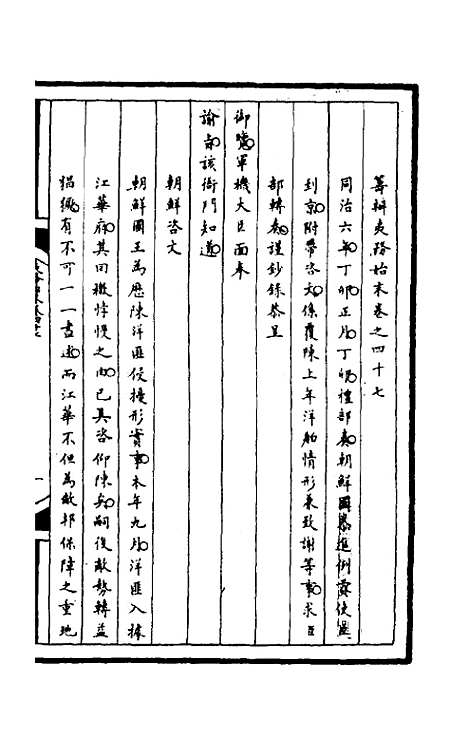 籌辦夷務始末卷之四十七
同治六年丁卯正月丁晚禮部奏朝鮮國恭進例貢使臣
到京附帶咨文係覆陳上年洋舶情形兼致謝等事求臣
部轉奏謹鈔錄恭呈
御覽軍機大臣面奉
諭旨該衙門知道
朝鮮咨文
朝鮮國王為歷陳洋匪侵擾形實事本年九月洋匪入據
江華府其回檄悖慢之由已具咨仰陳矣嗣後敵勢轉益
猖獗有不可一一盡述而江華不但為敝邦保障之重地
一